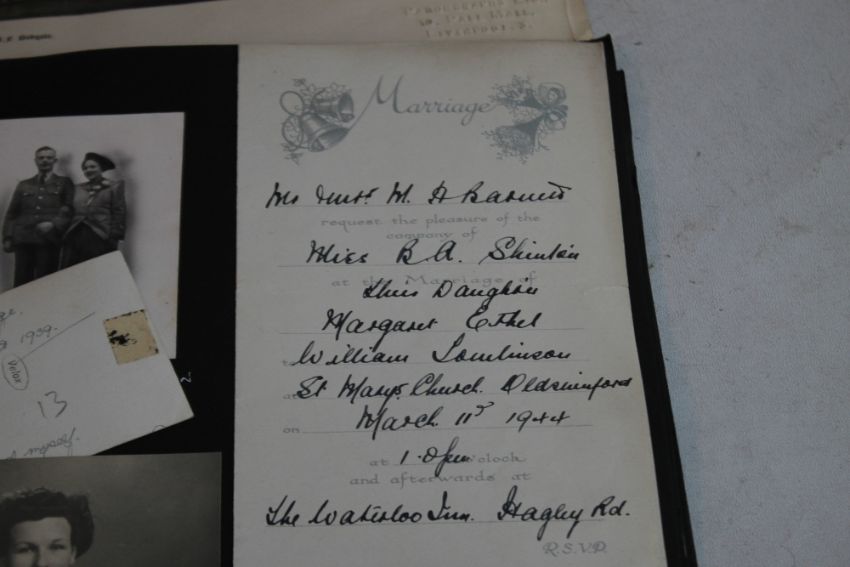 PALL MALL,
LIVERPOOL, 2.
Marriage
Mr & Mrs. M. H Barnett
request the pleasure of the
company of
Miss B A. Shinton
at the Marriage of
Their Daughter
Margaret Ethel
to William Tomlinson
at St Marys Church. Oldswinford
on March 11th 1944
at 1.0pm o'clock
and afterwards at
The Waterloo Inn. Hagley Rd.
R.S.V.P.
1939.
Velox
13
2.